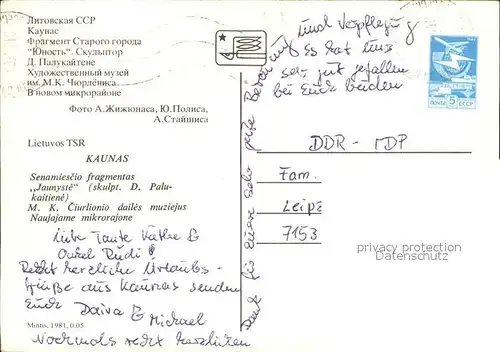 Литовская ССР
Каунас
Фрагмент Старого города
"Юность". Скульптор
Д. Палукайтене
Художественный музей
им. М.К. Чюрлёниса
В новом микрорайоне
Фото А.Жижюнаса, Ю.Полиса,
А.Стайшиса
Lietuvos TSR
KAUNAS
Senamiesčio fragmentas
„Jaunystė“ (skulpt. D. Palu-
kaitienė)
M. K. Čiurlionio dailės muziejus
Naujajame mikrorajone
Liebe Tante Käthe &
Onkel Rudi!
Recht herzliche Urlaubs-
grüße aus Kaunas senden
Euch Daiva &
Michael
Mintis, 1981, 0.05
Nochmals recht herzlichen
Dank für Eure sehr große Bewirtung
und Verpflegung
Es hat uns
sehr gut gefallen
bei Euch beiden
ПОЧТА 5 СССР
DDR - MDP
Fam.
Leipz
7153
privacy protection
Datenschutz